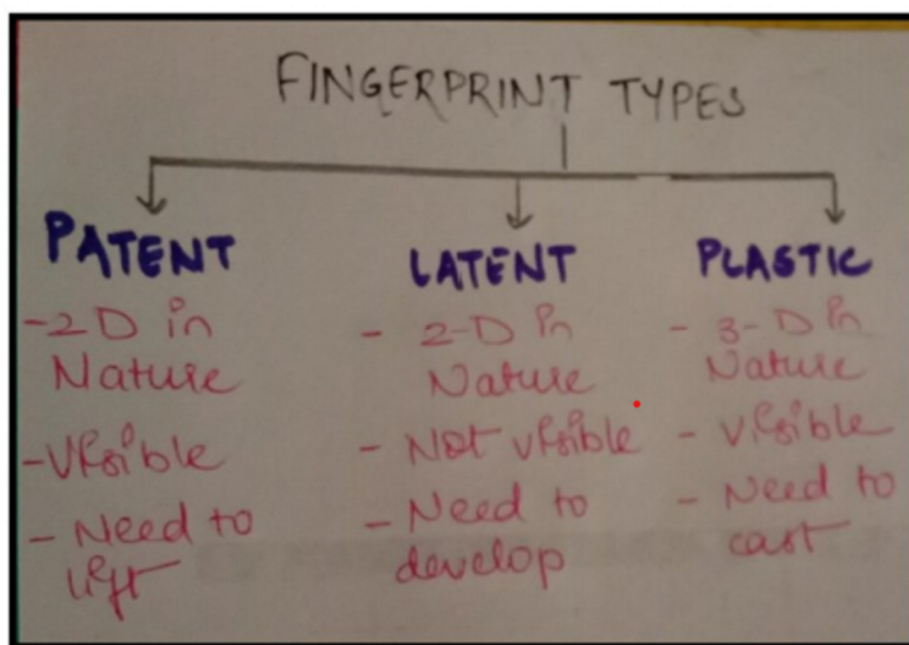 FINGERPRINT TYPES
PATENT
-2D in
Nature
-Visible
- Need to
lift
LATENT
- 2-D in
Nature
- Not visible
- Need to
develop
PLASTIC
- 3-D in
Nature
- Visible
- Need to
cast